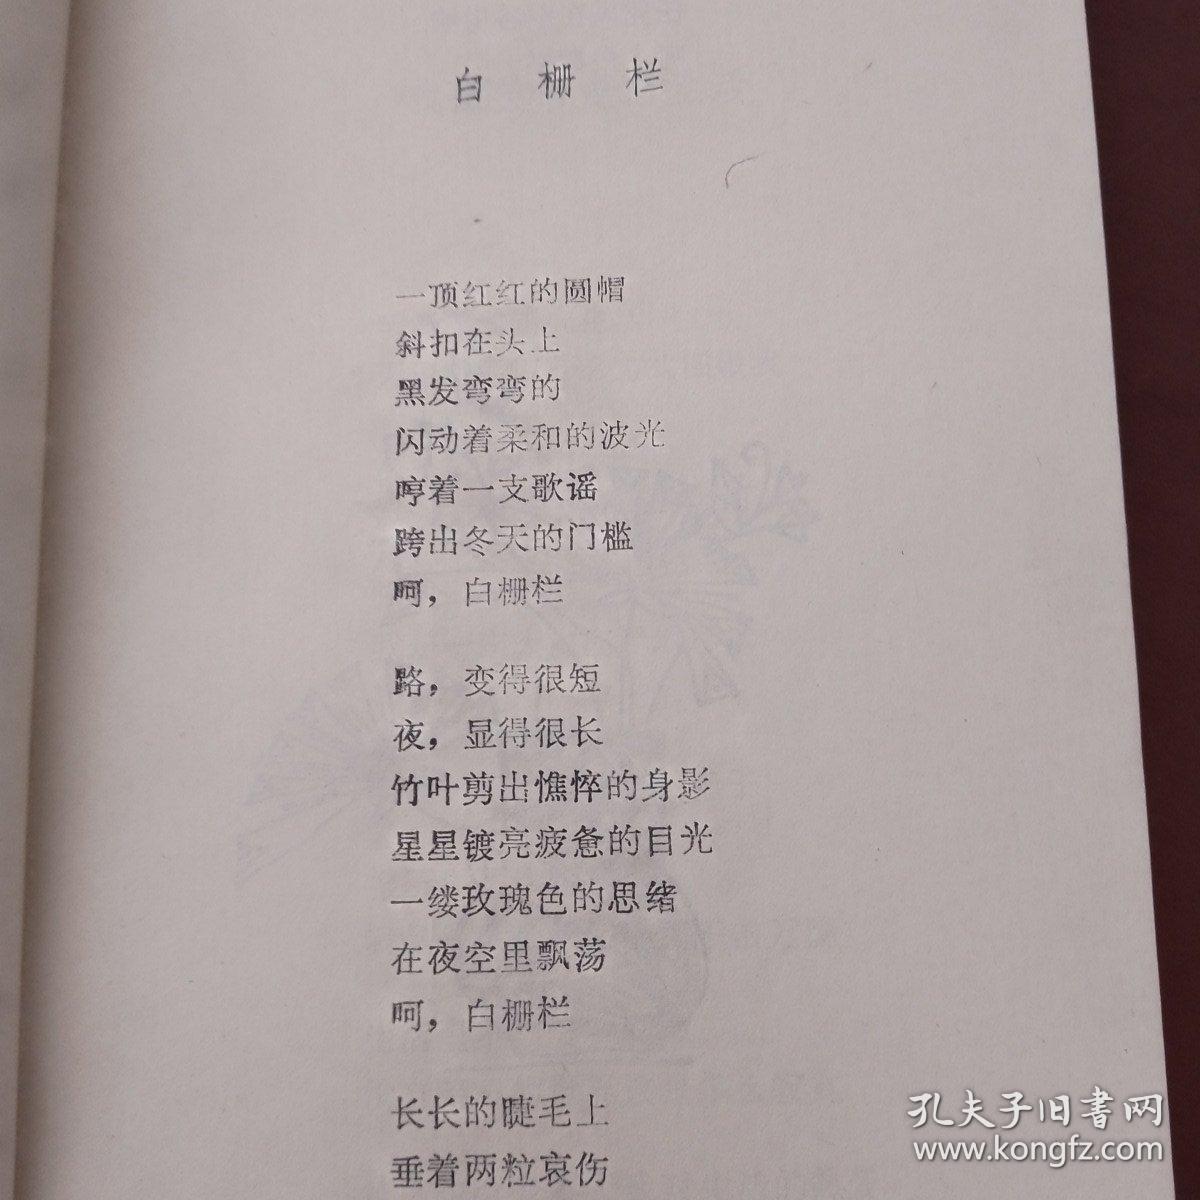 白栅栏
一顶红红的圆帽
斜扣在头上
黑发弯弯的
闪动着柔和的波光
哼着一支歌谣
跨出冬天的门槛
呵，白栅栏
路，变得很短
夜，显得很长
竹叶剪出憔悴的身影
星星镀亮疲惫的目光
一缕玫瑰色的思绪
在夜空里飘荡
呵，白栅栏
长长的睫毛上
垂着两粒哀伤
孔夫子旧书网
www.kongfz.com